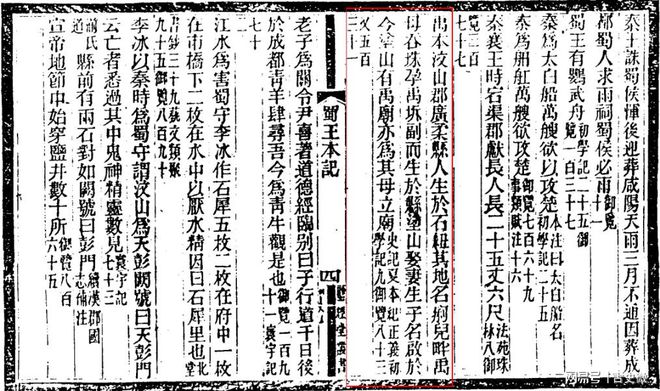 秦王誅蜀侯惲後迎葬咸陽天雨三月不通因葬成
都蜀人求雨祠蜀侯必雨御覽十一
蜀王有鸚武舟初學記二十五御覽一百三十七
秦爲太白船萬艘欲以攻楚初學記二十五本注曰太白船名
秦爲舶舡萬艘欲攻楚御覽七百六十九事類賦注十六
秦襄王時宕渠郡獻長人長二十五丈六尺法苑珠林八御
覽三百七十七
禹本汶山郡廣柔縣人生於石紐其地名痢兒畔禹
母吞珠孕禹坼副而生於縣塗山娶妻生子名啟於
今塗山有禹廟亦爲其母立廟史記夏本紀正義初學記九御覽八十三
又五百三十一
蜀王本記
四
老子爲關令尹喜著道德經臨别曰子行道千日後
於成都青羊肆尋吾今爲青牛觀是也御覽一百九十一寰宇記
七十二
江水爲害蜀守李冰作石犀五枚二枚在府中一枚
在市橋下二枚在水中以厭水精因曰石犀里也北堂
書鈔三十九藝文類聚九十五御覽八百九十
李冰以秦時爲蜀守謂汶山爲天彭闕號曰天彭門
云亡者悉過其中鬼神精靈數見寰宇記七十三
湔氏縣前有兩石對如闕號曰彭門續漢郡國志補注
宣帝地節中始穿鹽井數十所御覽八百六十五